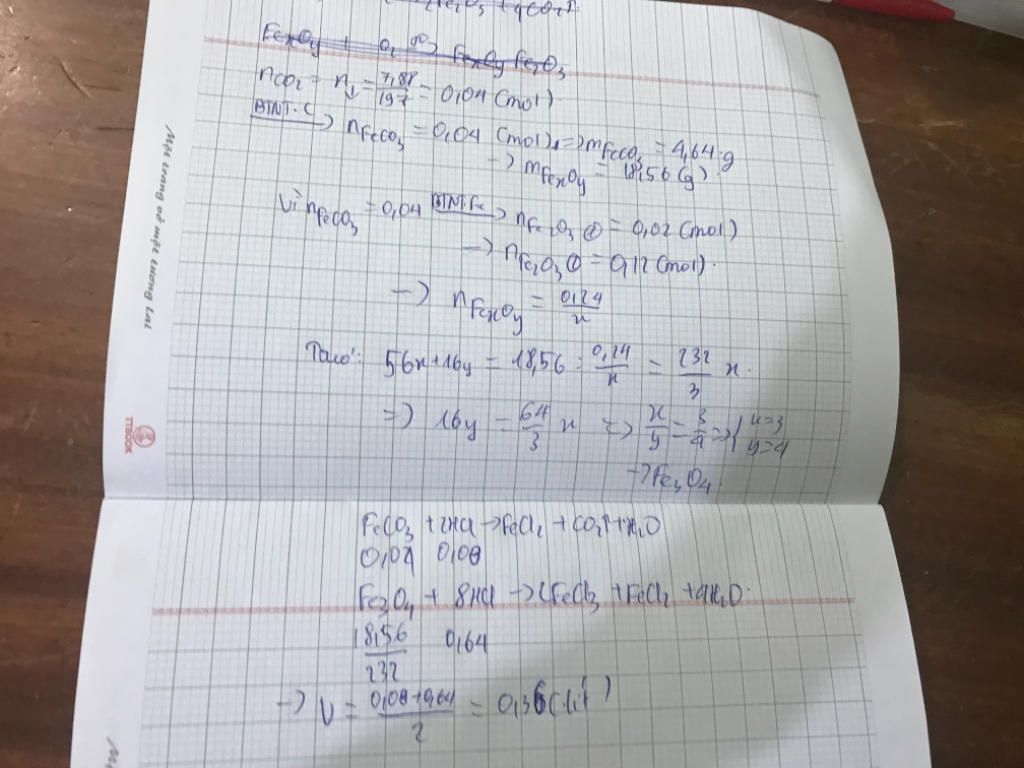 Fe₂O₃ + 4CO₂↑
FexOy + O₂ t°→ FexOy Fe₂O₃
nCO₂ = n↓ = 7,88/197 = 0,04 (mol).
BTNT.C → nFeCO₃ = 0,04 (mol) => mFeCO₃ = 4,64 g
→ mFexOy = 18,56 (g).
Vì nFeCO₃ = 0,04 BTNT.Fe → nFe₂O₃ = 0,02 (mol)
→ nFe₂O₃ = 0,12 (mol).
→ nFexOy = 0,24/x
Ta có: 56x+16y = 18,56 : 0,24/x = 232/3 x.
=> 16y = 64/3 x => x/y = 3/4 => { x=3 y=4
→ Fe₃O₄.
FeCO₃ + 2HCl → FeCl₂ + CO₂↑ + H₂O
0,04 0,08
Fe₃O₄ + 8HCl → 2FeCl₃ + FeCl₂ + 4H₂O.
18,56/232 0,64
→ V = 0,08+0,64/2 = 0,36 (lít)
TTBOOK